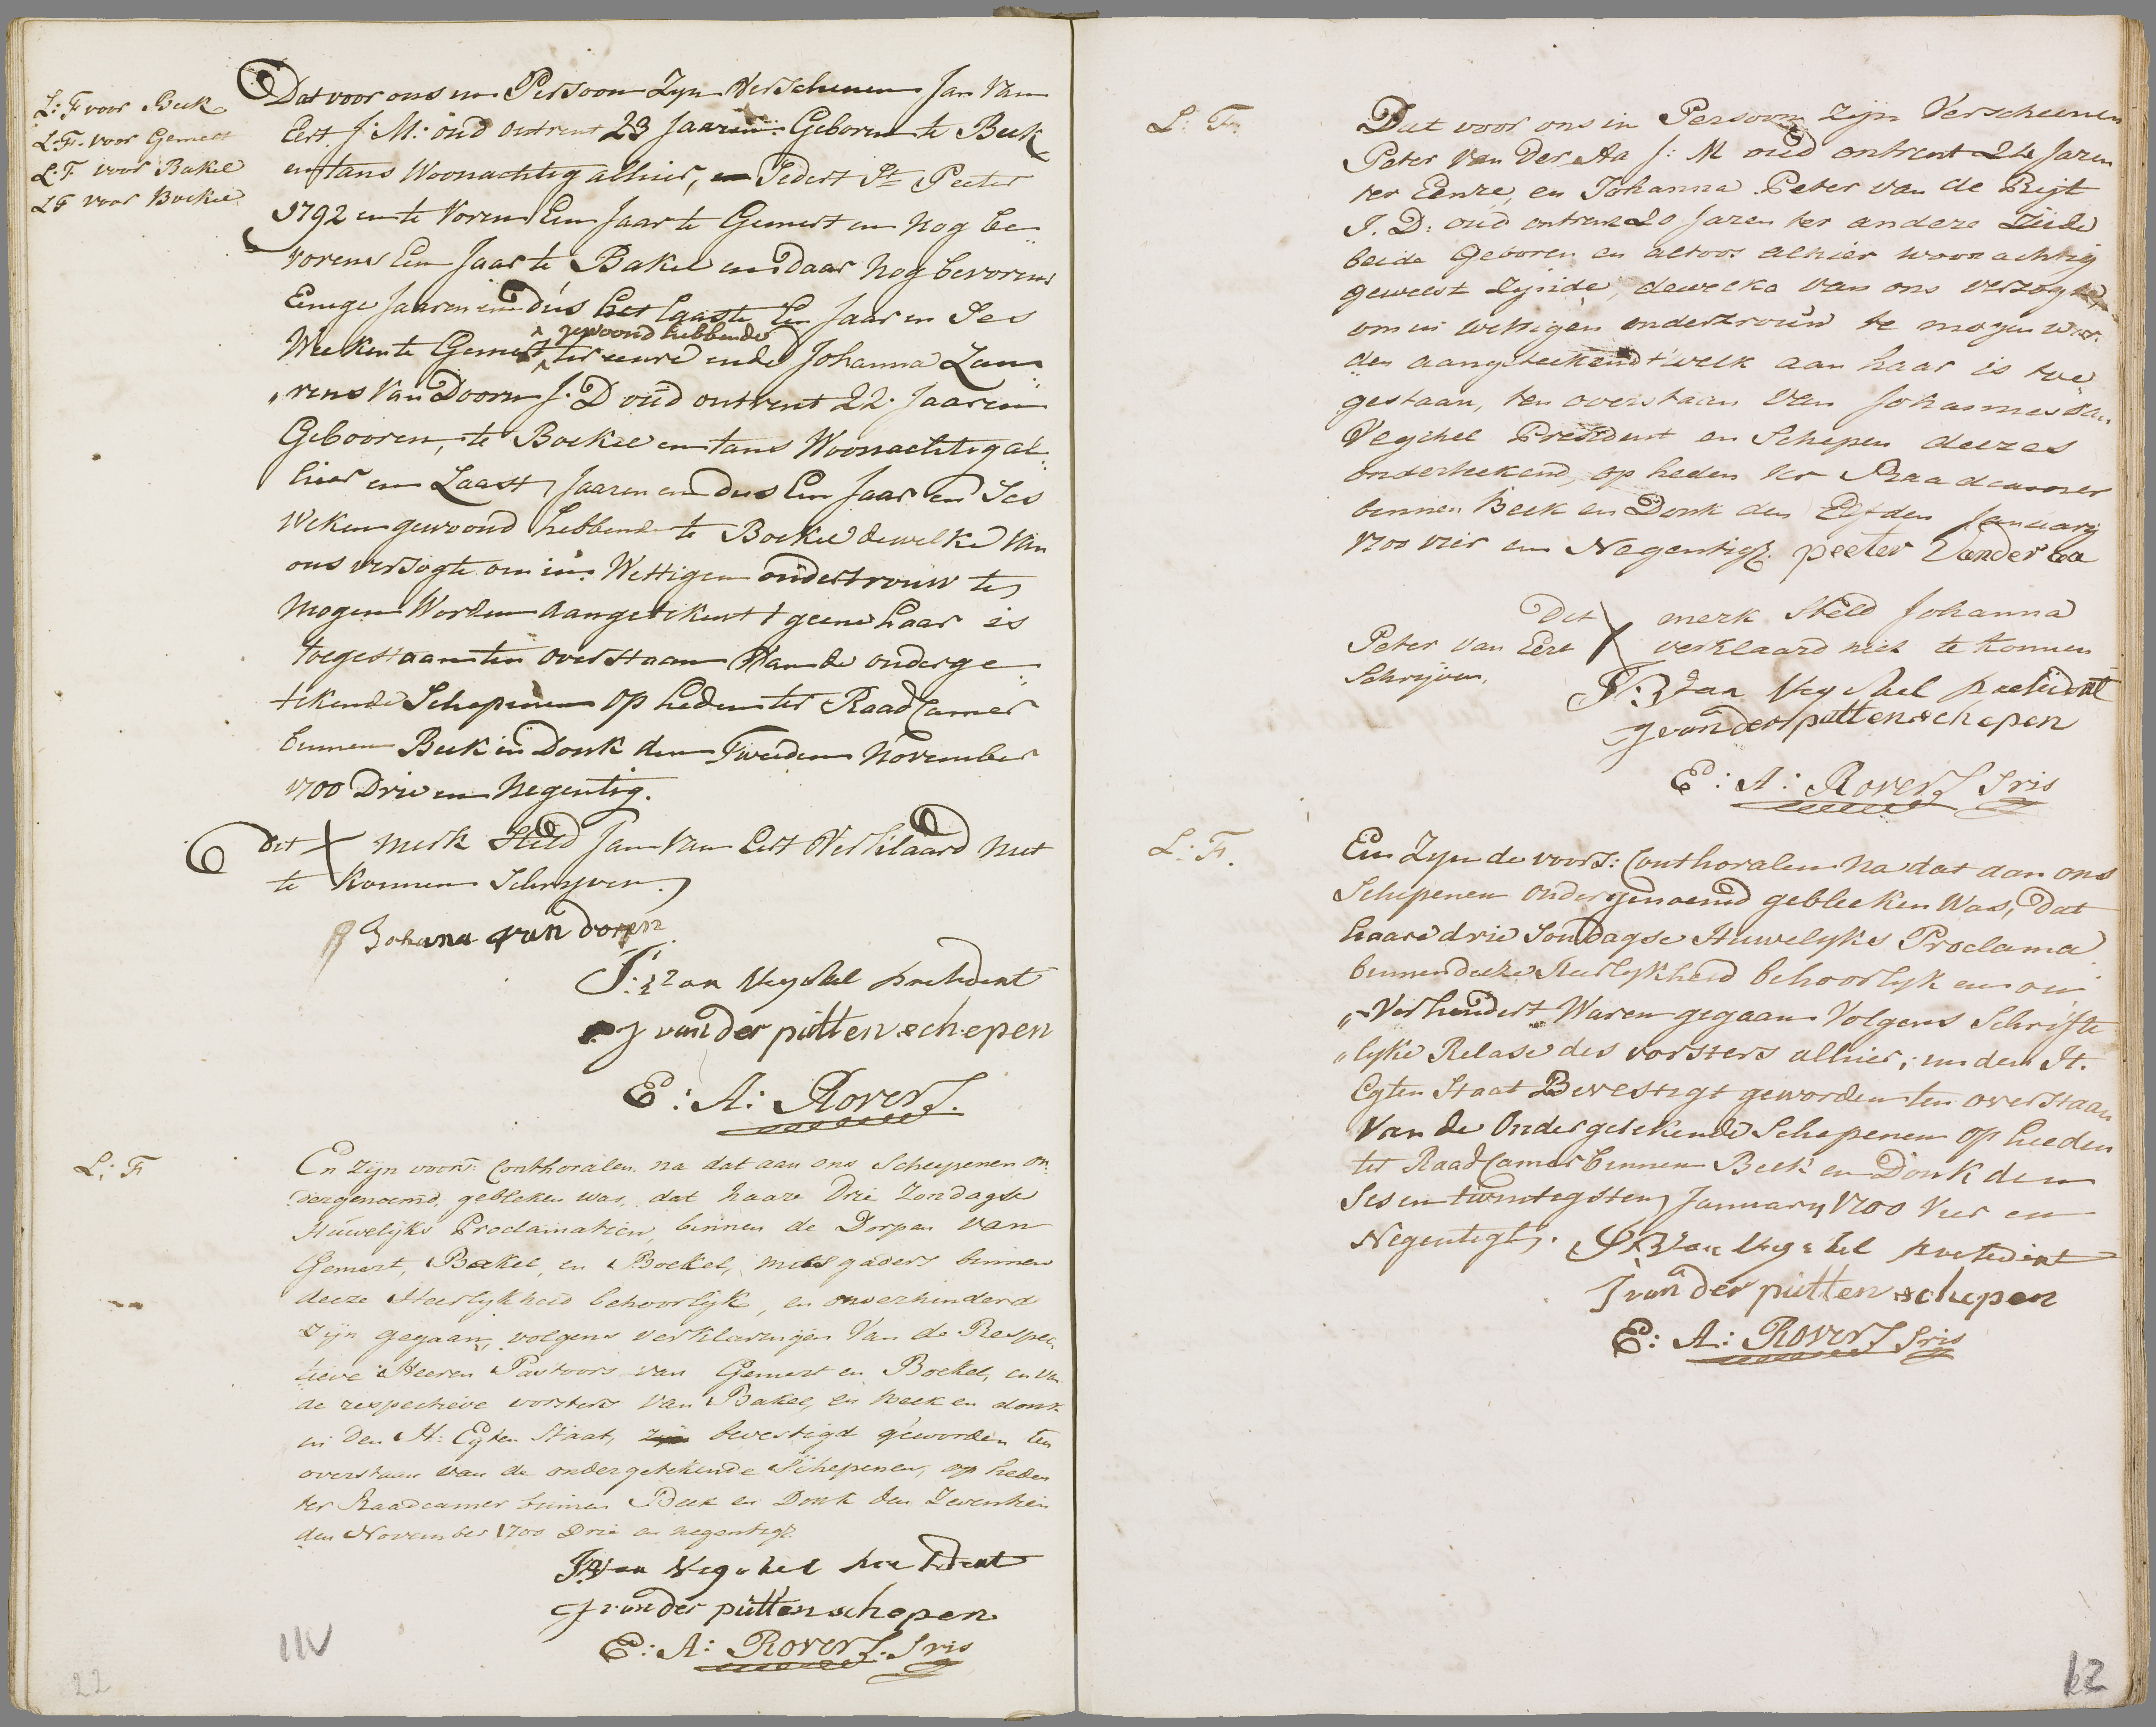 L: F voor Beek
L: F. voor Gemert
L F voor Bakel
L F voor Boekel
Dat voor ons in Persoon Zyn Verschenen Jan Van
Eert J: M: oud ontrent 23 Jaaren Geboren te Beek
en tans Woonachtig alhier, Sedert St Peeter
1792 en te Vorens Een Jaar te Gemert en nog be
vorens Een Jaar te Bakel en daar nog bevorens
Eenige Jaaren en dus het laaste Een Jaar en Ses
gewoond hebbende
Weeken te Gemert ter eenre ende Johanna Lau
„rens Van Doorn J. D oud ontrent 22. Jaaren
Gebooren, te Boekel en tans Woonachtig al
hier en Laast Jaaren en dus Een Jaar en Ses
Weken gewoond hebbende te Boekel dewelke van
ons versogte om in Wettigen ondertrouw te
Mogen Worden aangetekent t geene haar is
toegestaan ten overstaan Van de onderge
tekende Schepenen op heden ter Raad Camer
binnen Beek en Donk den Tweeden November
1700 Drie en Negentig.
Dit X merk Steld Jan Van Eert Verklaard niet
te konnen Schryven.
Johana van doren
J: van Veghel president
J van der putten schepen
E: A: Rovers.
L: F
En zijn voors: Conthoralen na dat aan ons Scheepenen on
dergenoemd, gebleken was, dat haare Drie Zondagse
Huwelijks Proclamatien, binnen de Dorpen van
Gemert, Bakel, en Boekel, mits gaders binnen
deeze Heerlijkheid behoorlijk, en onverhinderd
zijn gegaan, volgens verklaringen Van de Respec
tieve Heeren Pastoors van Gemert en Boekel, en van
de respectieve vorsters van Bakel, en Beek en donk
in Den H: Egten Staat, zijn bevestigd geworden ten
overstaan van de ondergetekende Schepenen, op heden
ter Raadcamer binnen Beek en Donk den Zeventien
den November 1700 Drie en negentig.
J van Veghel president
J van der putten schepen
E: A: Rovers. Sris
22
L: F.
Dat voor ons in Persoon zijn Verscheenen
Peter Van Der Aa J: M oud ontrent 24 Jaren
ter Eenre, en Johanna Peter van de Rijt
J. D: oud ontrent 20 Jaren ter andere Zeide
beide Geboren en altoos alhier woonachtig
geweest zijnde, dewelke van ons verzogt
om in wettigen ondertrouw te mogen wor
den aangeteekend t welk aan haar is toe
gestaan, ten overstaan van Johannes van
Veghel President en Schepen deezes
onderteekend, op heden ter Raadcamer
binnen Beek en Donk den Elfden January
1700 vier en Negentig. peeter Vander aa
Dit X merk Steld Johanna
Peter van Eert verklaard niet te konnen
Schrijven,
J: van Veghel president
J van der putten schepen
E: A: Rovers Sris
L: F.
En Zyn de voors: Conthoralen na dat aan ons
Schepenen ondergenoemd gebleeken Was, Dat
haare drie Sondagse Huwelyks Proclama
binnen deeze Heerlykheid behoorlyk en on
„Verhindert Waren gegaan Volgens Schrifte
„lyke Relase des vorsters alhier; in den H.
Egten Staat Bevestigt geworden ten overstaan
Van de Ondergetekende Schepenen op heeden
ter Raad Camer binnen Beek en Donk den
Ses en twintigsten January 1700 Vier en
Negentigh.
J van Veghel president
J van der putten schepen
E: A: Rovers Sris
12